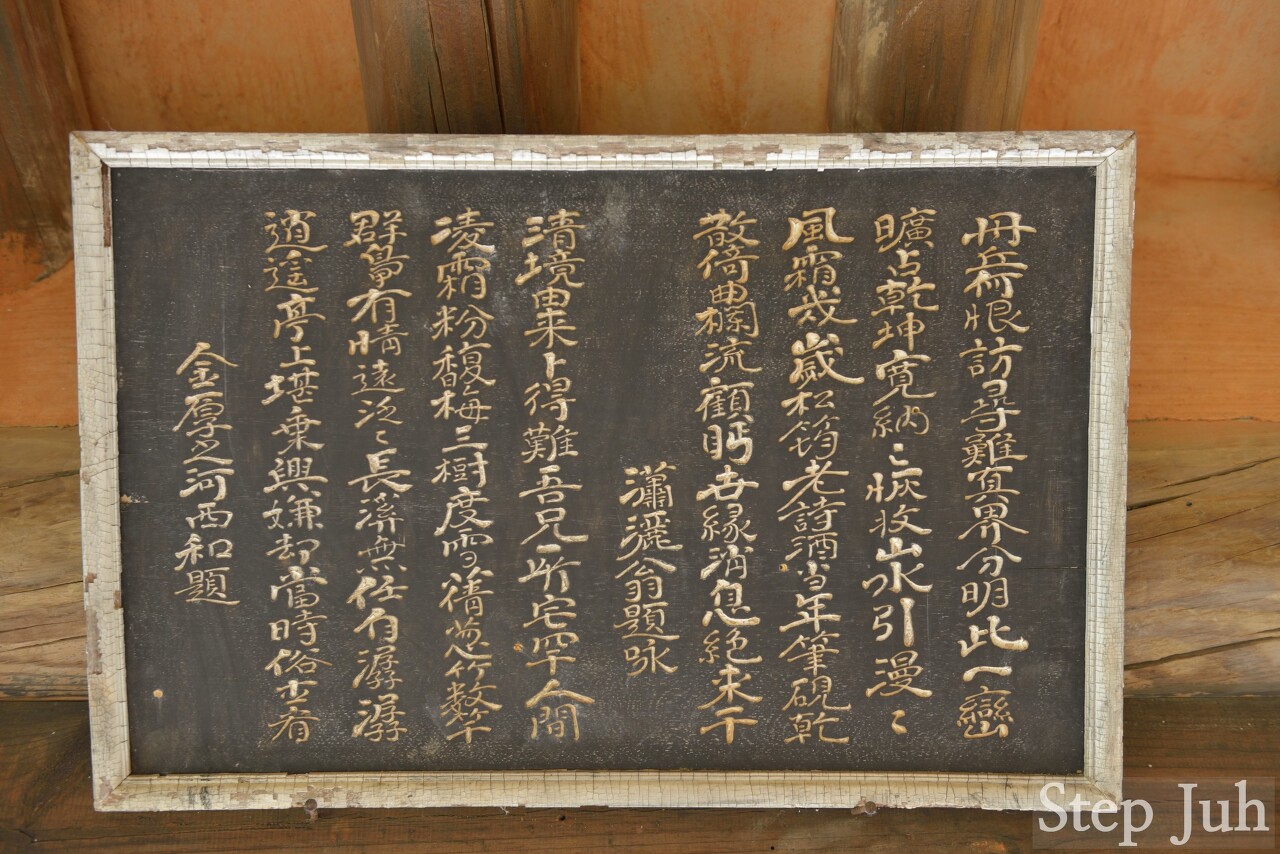 丹丘何恨訪尋難真界分明此一巒
曠占乾坤寬納〻恢收山水引漫〻
風霜幾歲松筠老詩酒當年筆硯乾
散倚曲欄流顧眄世緣消息絶來干
瀟灑翁題咏
清境由來卜得難吾兄所宅罕人間
凌霜粉馥梅三樹度雪蒨葱竹數竿
群島有時遠泛〻長溪無任自潺潺
逍遙亭上堪乗興嫌却當時俗士看
金厚之河西和題
Step Juh